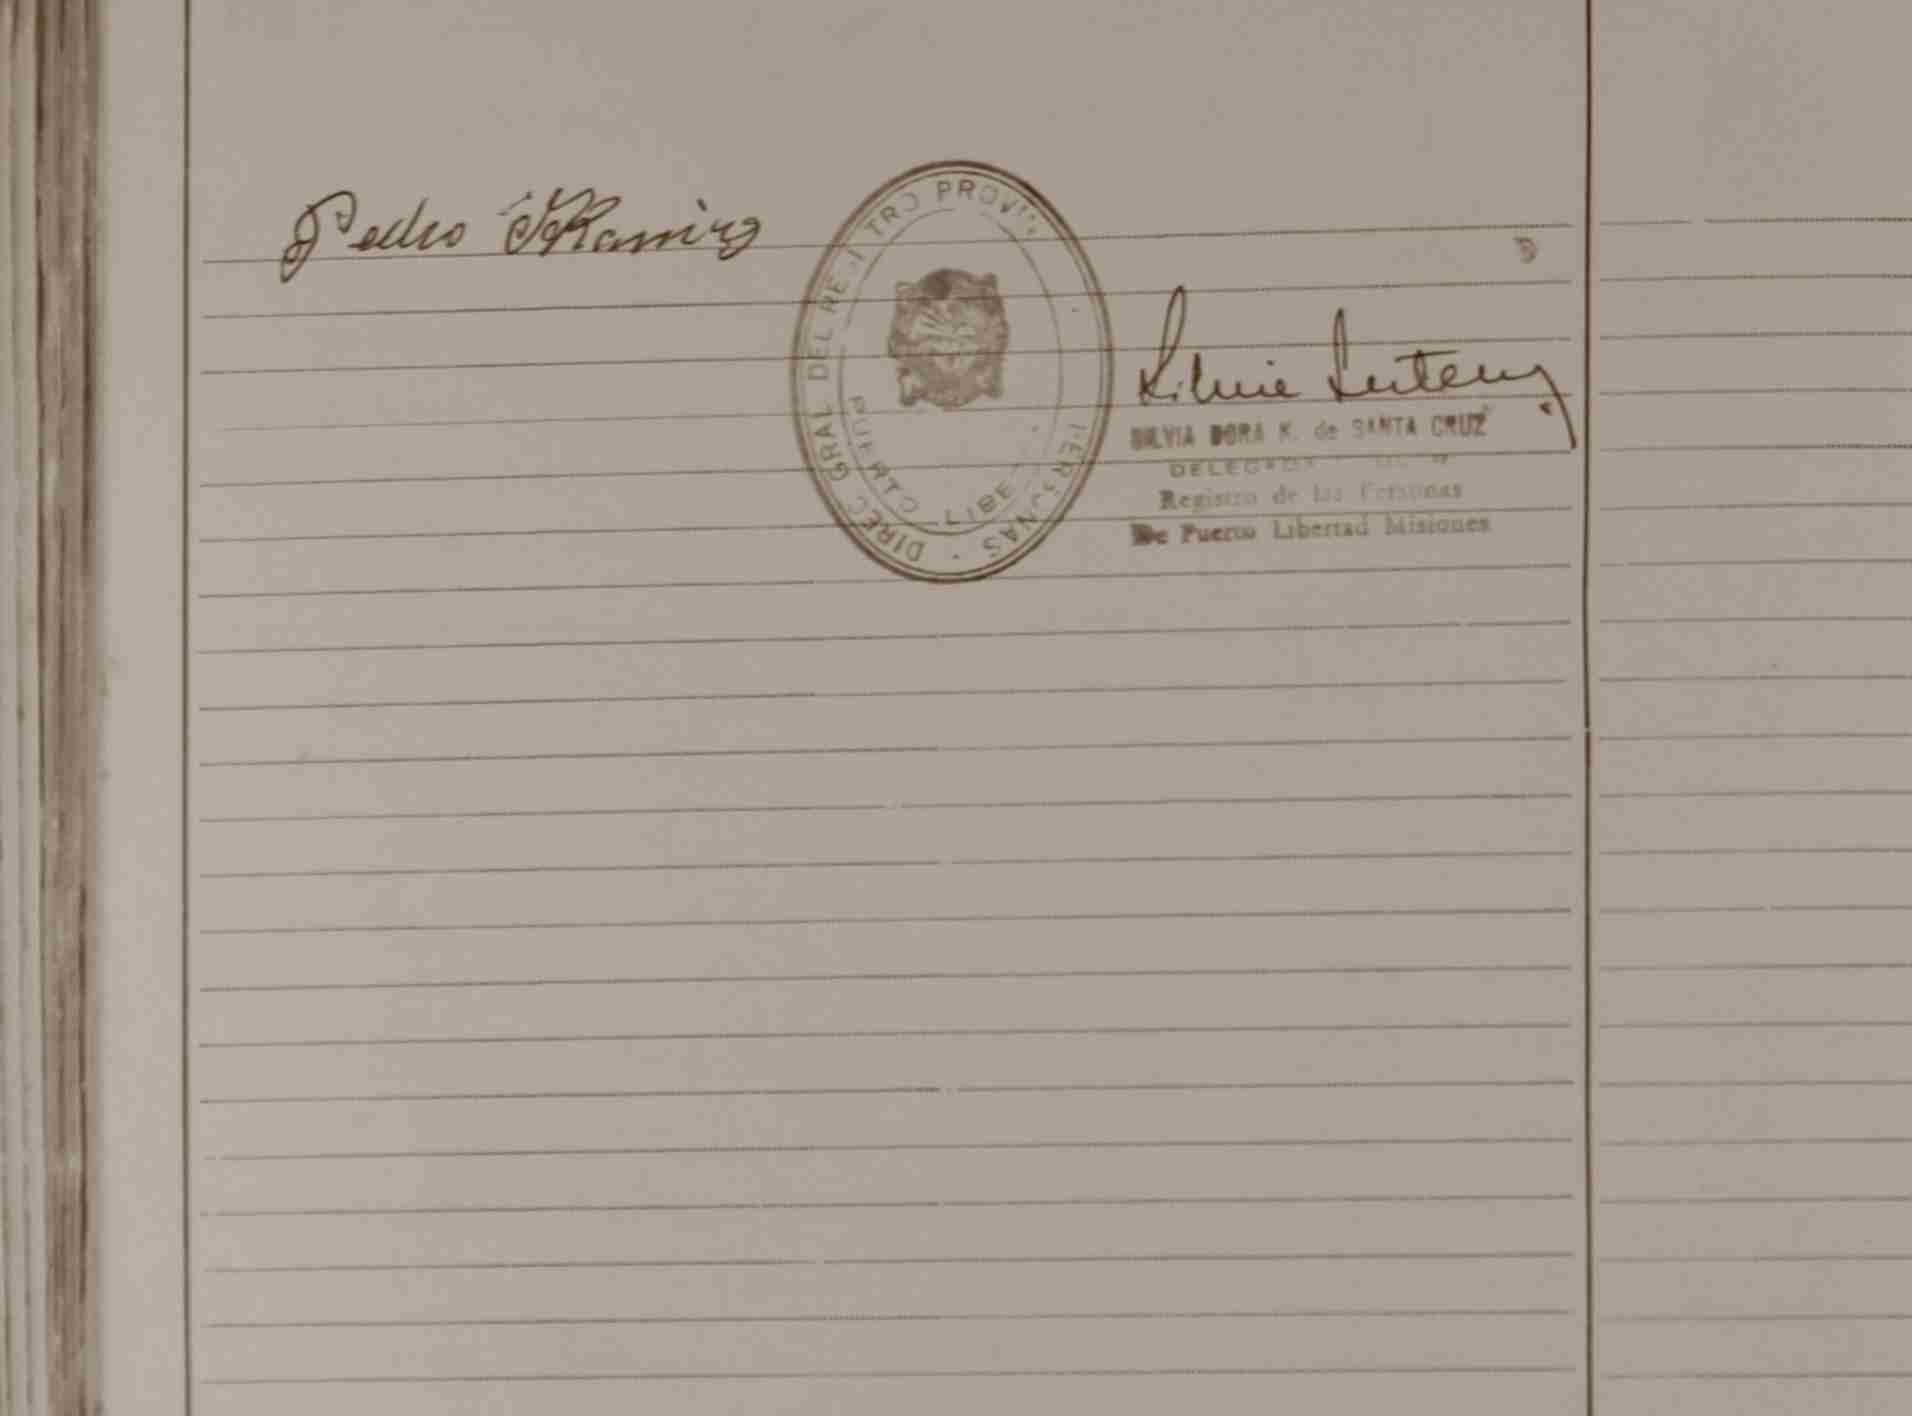 Pedro Ramirez
DIREC GRAL DEL REGISTRO PROVIN PERSONAS
PUERTO LIBE
Silvia
SILVIA DORA K. de SANTA CRUZ
DELEGADA
Registro de las Personas
De Puerto Libertad Misiones